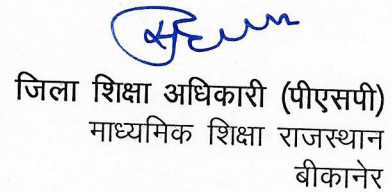 जिला शिक्षा अधिकारी (पीएसपी)
माध्यमिक शिक्षा राजस्थान
बीकानेर